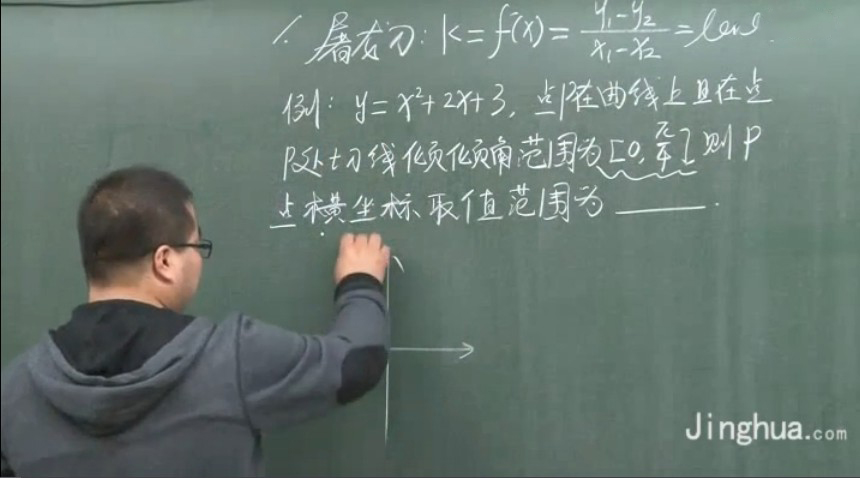 1、暑木刀: K = f'(x) = \frac{y_1-y_2}{x_1-x_2} =
例: y = x²+2x+3, 点P在曲线上且在点
P处切线倾倾角范围为[0, \frac{π}{4}]则P
点横坐标取值范围为 ______.
Jinghua.com